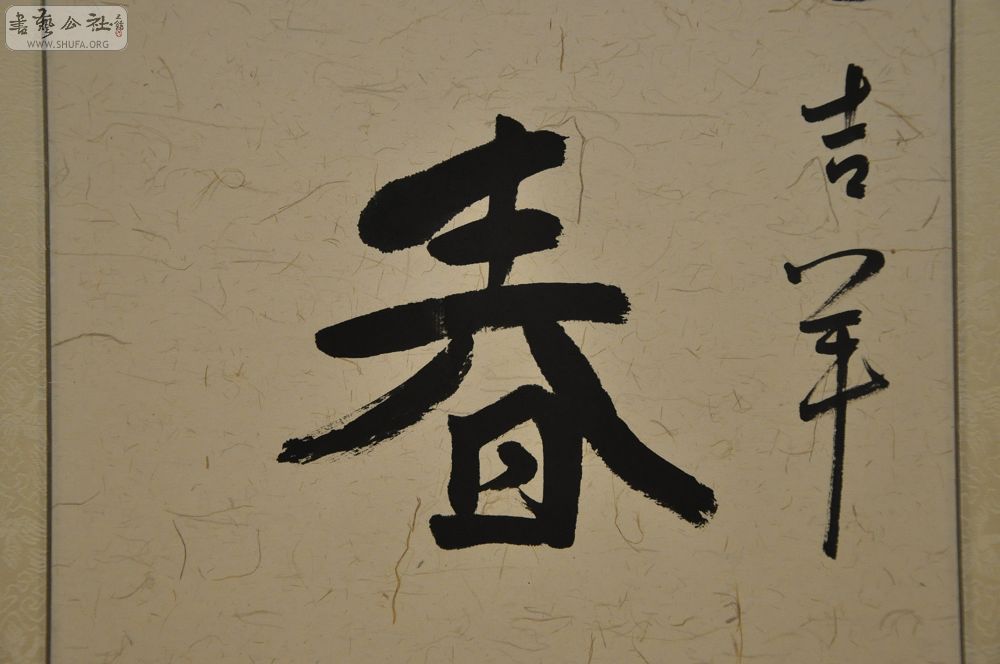 書藝公社
WWW.SHUFA.ORG
吉羊
春